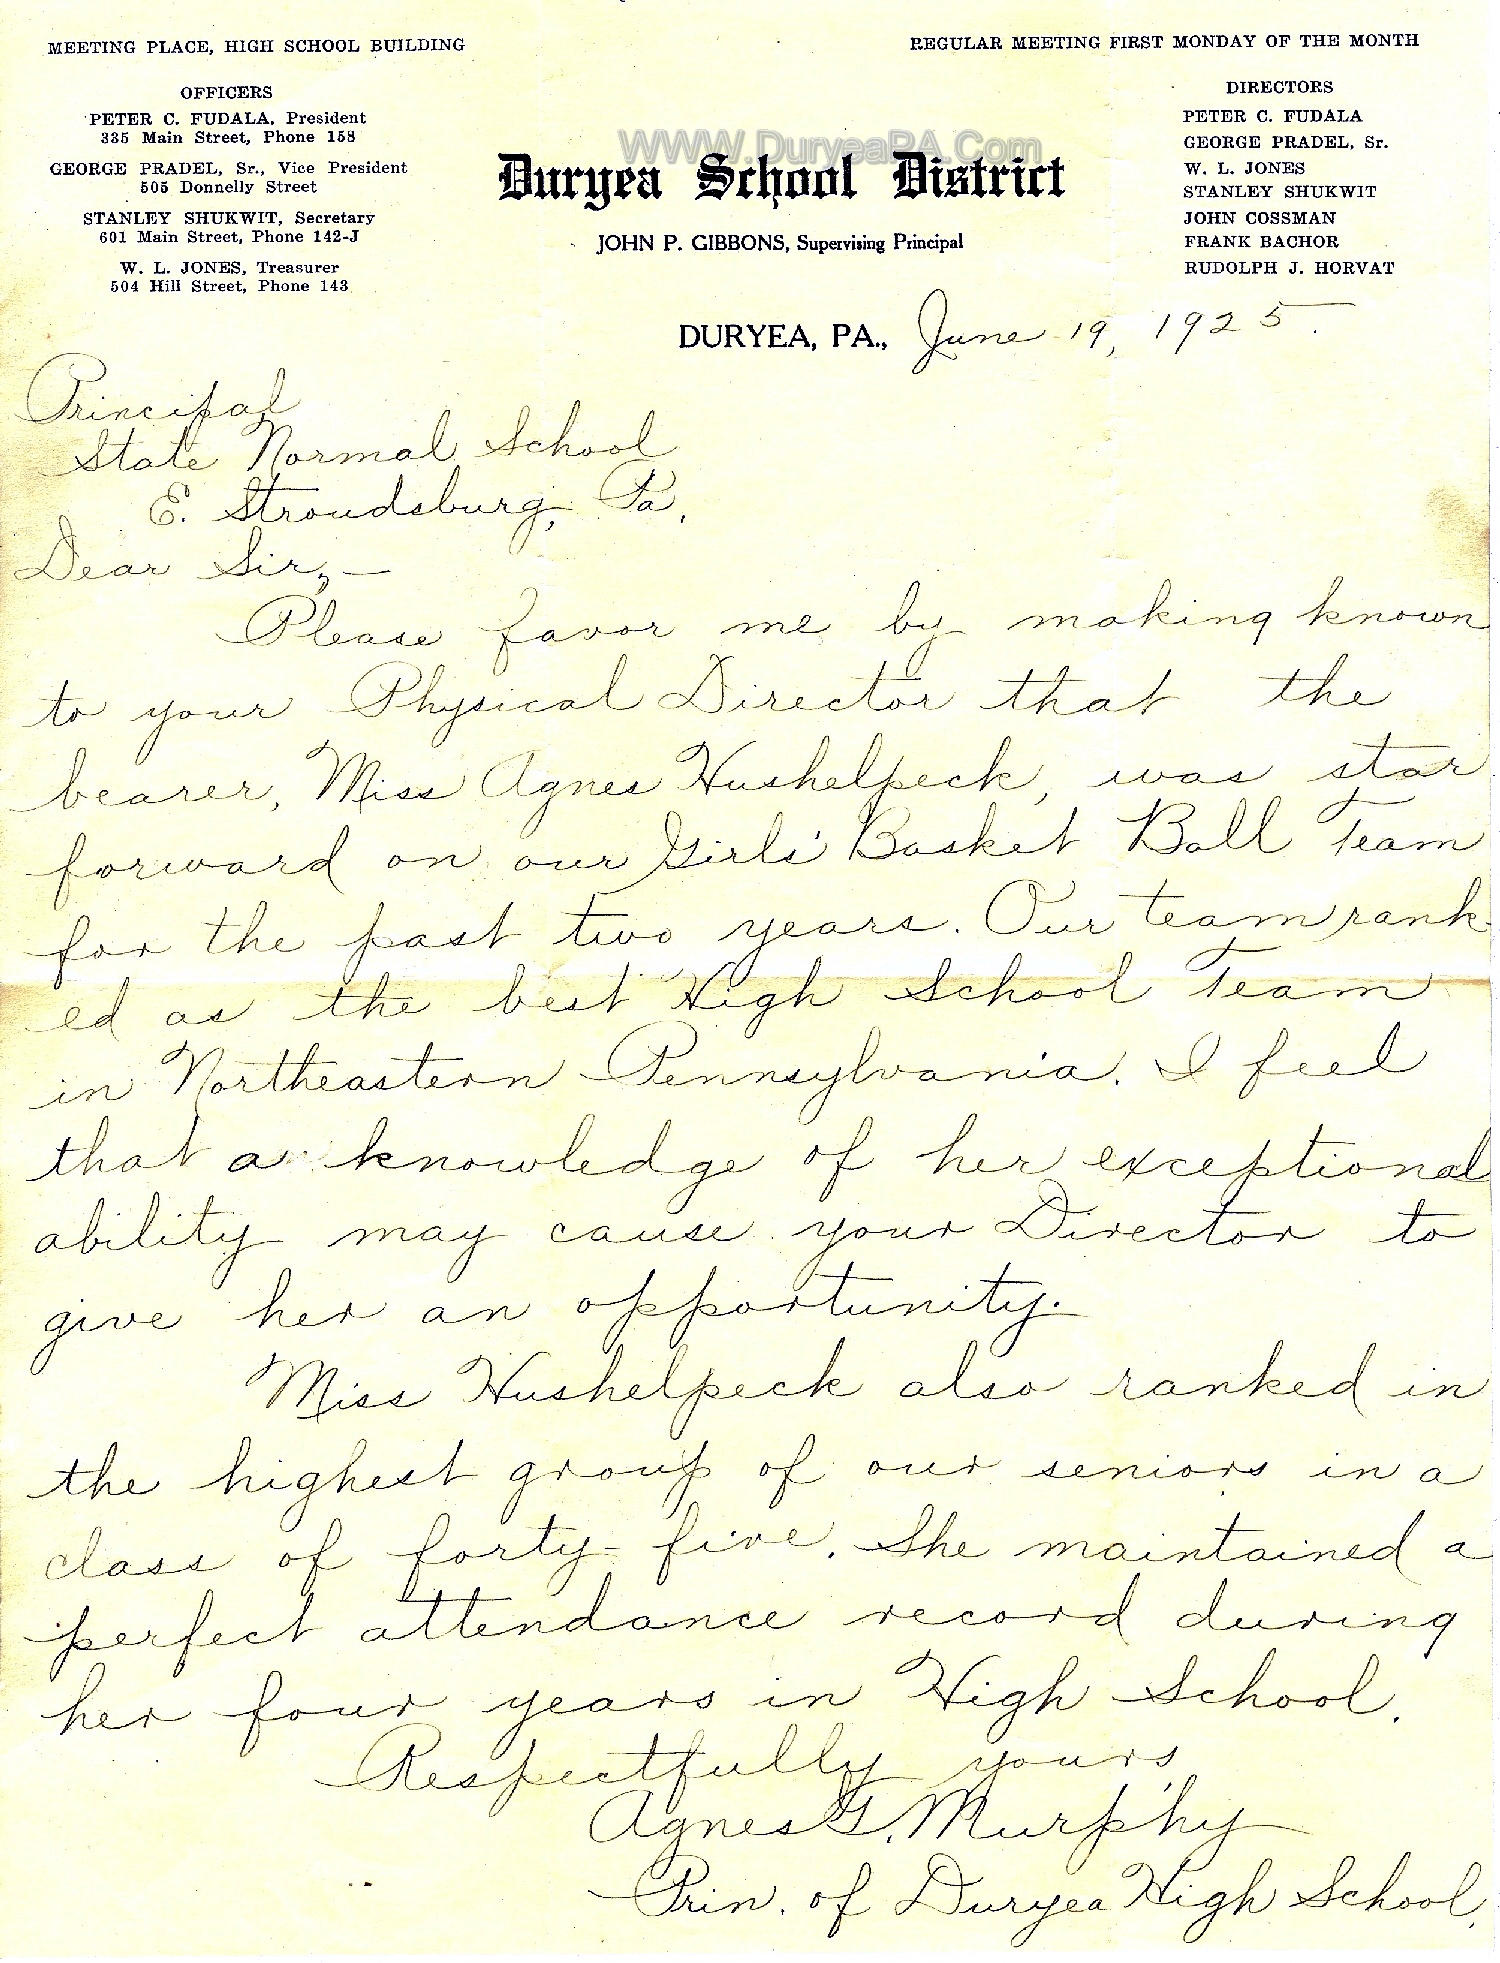 MEETING PLACE, HIGH SCHOOL BUILDING
REGULAR MEETING FIRST MONDAY OF THE MONTH
OFFICERS
PETER C. FUDALA, President
335 Main Street, Phone 158
GEORGE PRADEL, Sr., Vice President
505 Donnelly Street
STANLEY SHUKWIT, Secretary
601 Main Street, Phone 142-J
W. L. JONES, Treasurer
504 Hill Street, Phone 143
WWW.DuryeaPA.Com
Duryea School District
JOHN P. GIBBONS, Supervising Principal
DIRECTORS
PETER C. FUDALA
GEORGE PRADEL, Sr.
W. L. JONES
STANLEY SHUKWIT
JOHN COSSMAN
FRANK BACHOR
RUDOLPH J. HORVAT
DURYEA, PA., June 19, 1925.
Principal
State Normal School
E. Stroudsburg, Pa.
Dear Sir,—
Please favor me by making known
to your Physical Director that the
bearer, Miss Agnes Hushelpeck, was star
forward on our Girls' Basket Ball Team
for the past two years. Our team rank-
ed as the best High School Team
in Northeastern Pennsylvania. I feel
that a knowledge of her exceptional
ability may cause your Director to
give her an opportunity.
Miss Hushelpeck also ranked in
the highest group of our seniors in a
class of forty-five. She maintained a
perfect attendance record during
her four years in High School.
Respectfully yours,
Agnes G. Murphy
Prin. of Duryea High School.